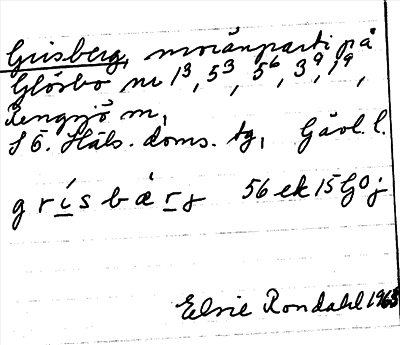 Grisberg, moränparti på
Glösbo nr 1³, 5³, 5⁶, 3⁹, 1⁹,
Rengsjö sn,
S ö. Häls. doms. tg, Gävl. l.
g r í s b æ̀ r g 56 ek 15 G0j
Elsie Rondahl 1963